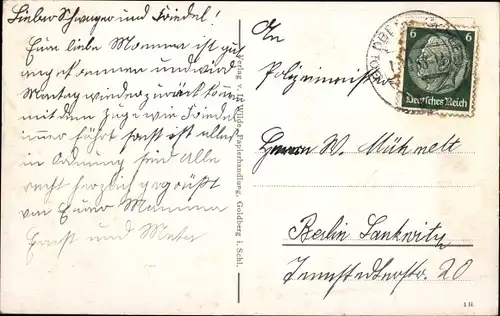 Lieber Schwager und Friedel!
Eure liebe Mamma ist gut
angekommen und wird
Montag wieder zurück kommen
mit dem Zuge wie Friedel
immer fährt sonst ist alles
in Ordnung seid Alle
recht herzlich gegrüßt
von Eurer Mamma
Ernst und Meta
Verlag v. Wilde, Papierhandlung, Goldberg i. Schl.
GOLDBERG
6 6
Deutsches Reich
An
Polizeimeister
Herrn W. Mühmelt
Berlin Lankwitz
20
1 H